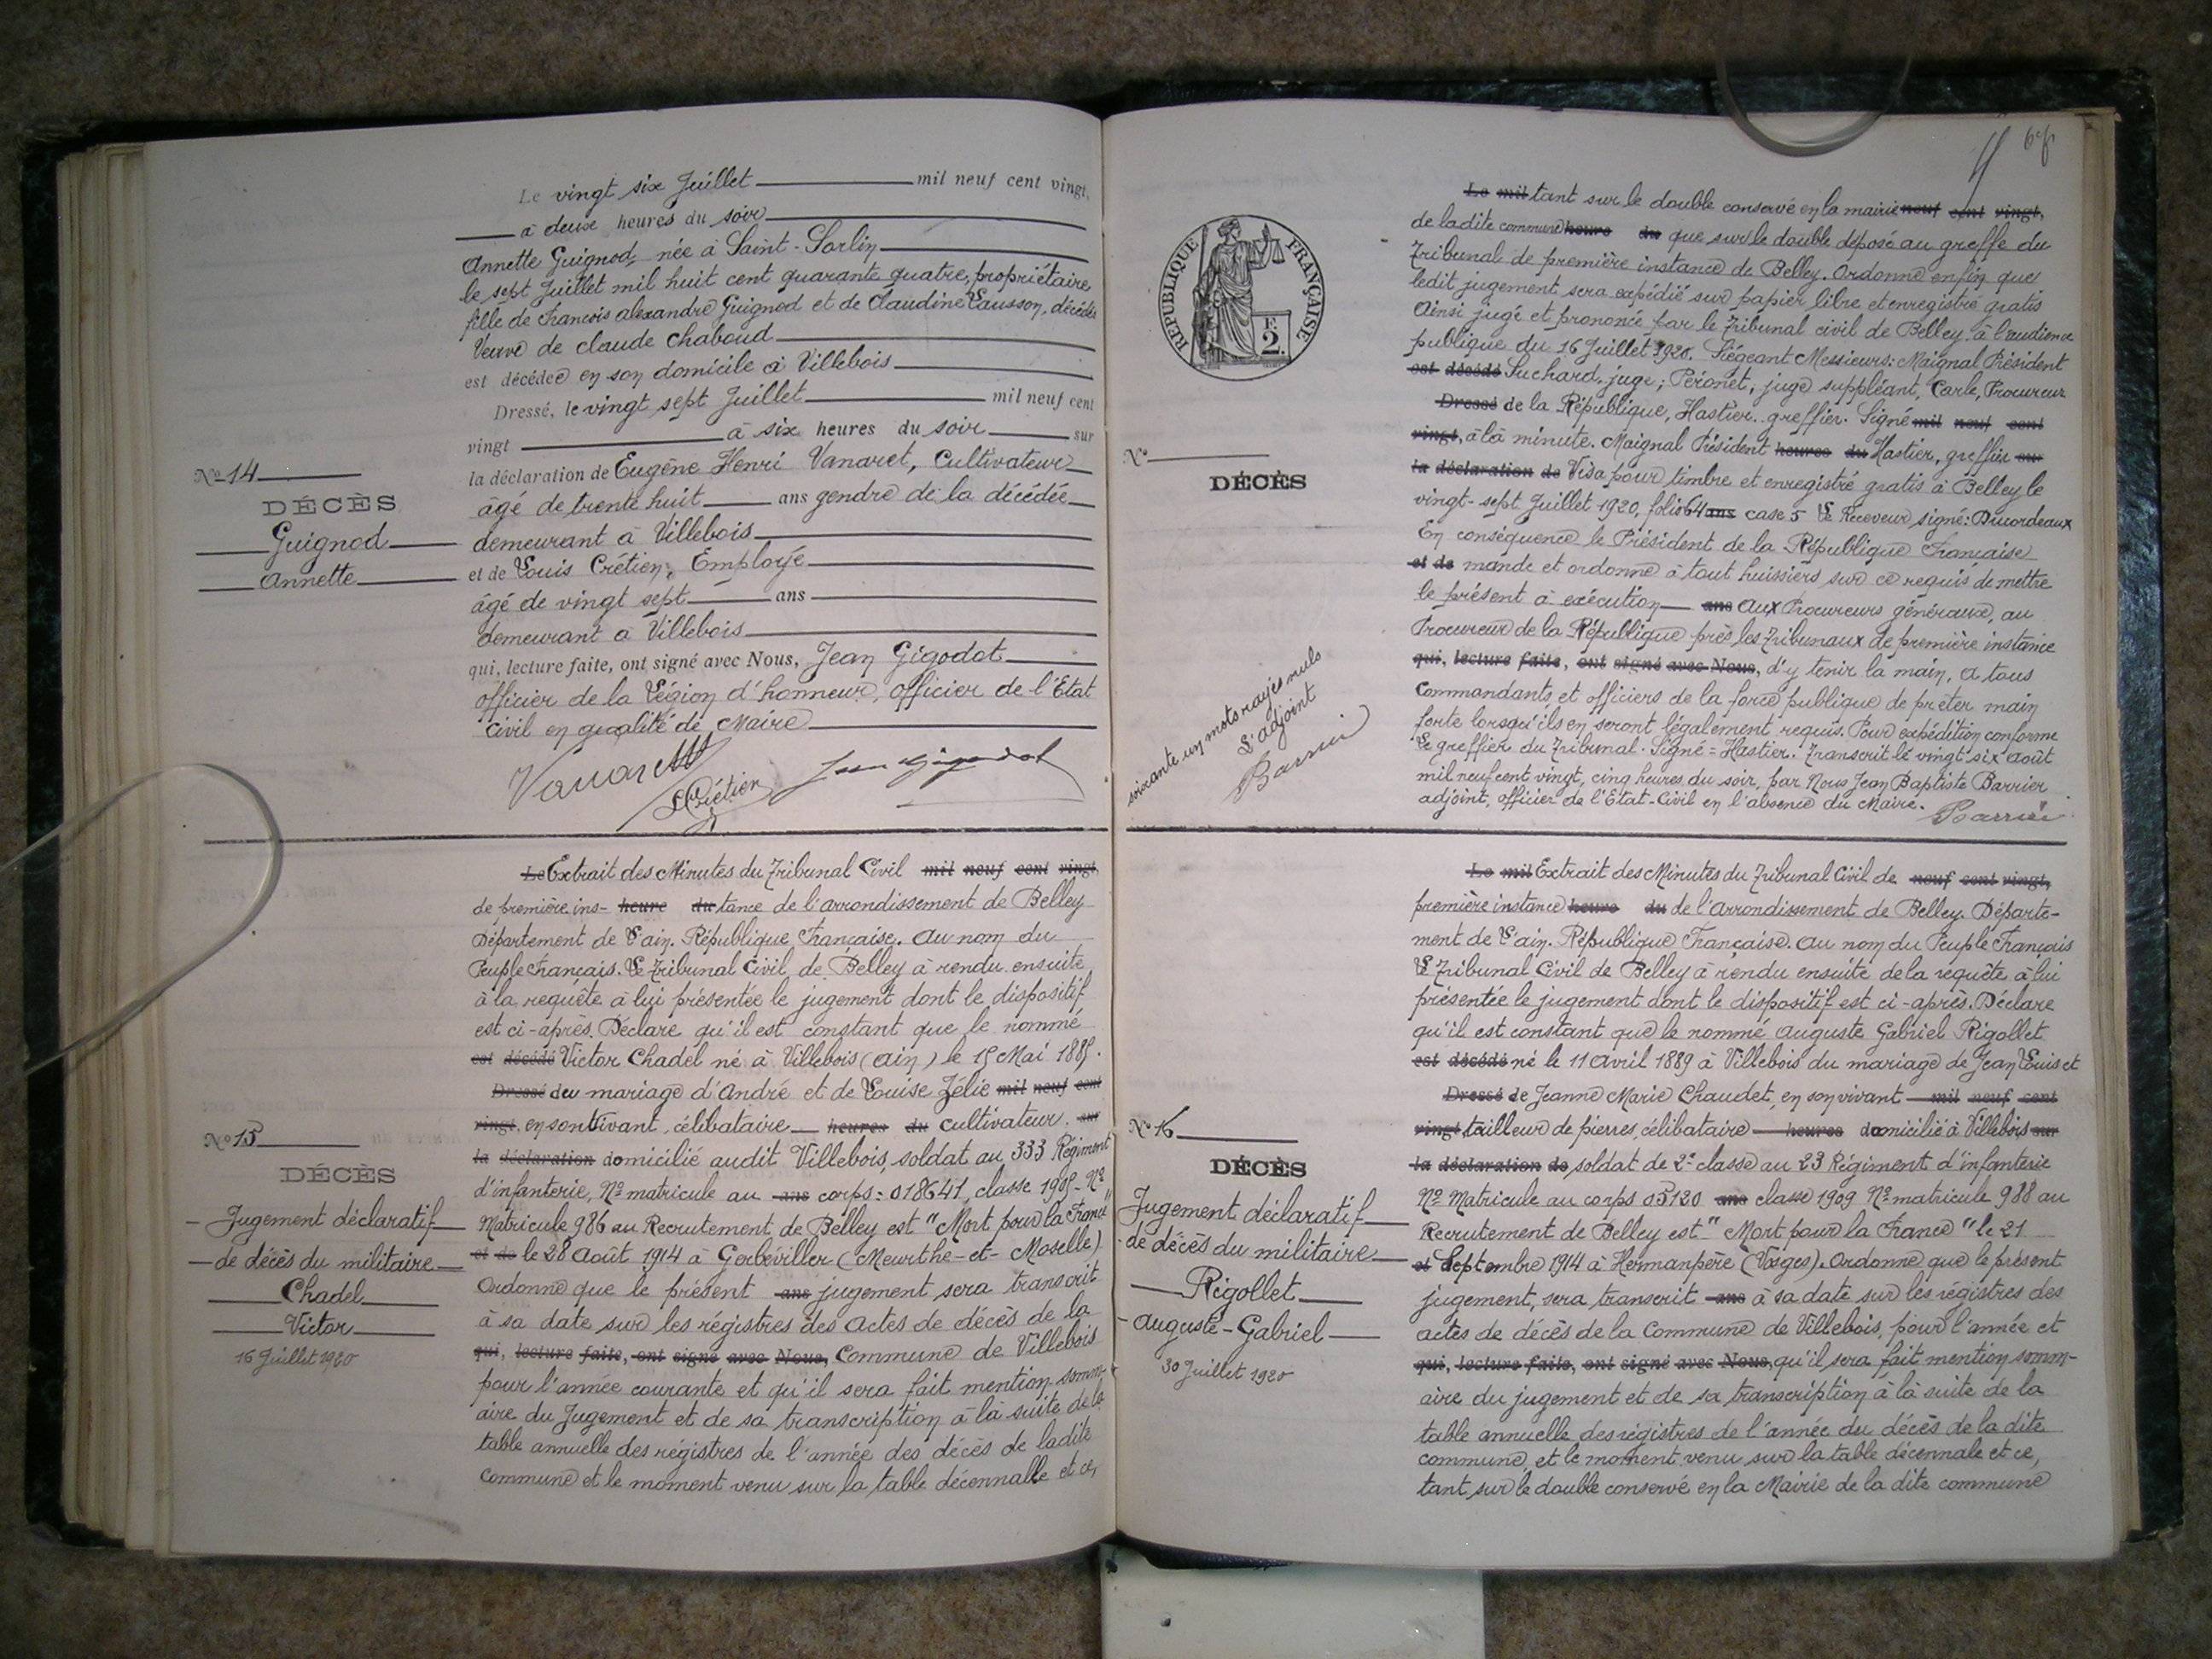 Le vingt six Juillet mil neuf cent vingt,
à deux heures du soir
Annette Guignod née à Saint-Sorlin
le sept Juillet mil huit cent quarante quatre, propriétaire
fille de francois alexandre Guignod et de Claudine Causson, décédés
Veuve de claude Chaboud
est décédée en son domicile à Villebois
Dressé, le vingt sept Juillet mil neuf cent
vingt à six heures du soir sur
la déclaration de Eugène Henri Vanaret, Cultivateur
âgé de trente huit ans gendre de la décédée
demeurant à Villebois
et de Louis Crétien, Employé
âgé de vingt sept ans
demeurant à Villebois
qui, lecture faite, ont signé avec Nous, Jean Gigodot
officier de la Légion d'honneur, officier de l'Etat
Civil en qualité de Maire
Vanaret
LCrétien
Jean Gigodot
No 14
DÉCÈS
Guignod
Annette
Le Extrait des Minutes du Tribunal Civil mil neuf cent vingt,
de première ins- heure du tance de l'arrondissement de Belley
Département de l'ain. République Française. au nom du
Peuple Français. Le Tribunal Civil de Belley à rendu ensuite
à la requête à lui présentée le jugement dont le dispositif
est ci-après. Déclare qu'il est constant que le nommé
est décédé Victor Chadel né à Villebois (ain) le 15 Mai 1885.
Dressé du mariage d'André et de Louise Zélie mil neuf cent
vingt, en son vivant, célibataire heures du cultivateur. sur
la déclaration domicilié audit Villebois, soldat au 333 Régiment
d'infanterie, No matricule au ans corps: 018641, classe 1905- No
Matricule 986 au Recrutement de Belley est "Mort pour la France"
et de le 28 Août 1914 à Gerbéviller (Meurthe-et-Moselle)
Ordonne que le présent ans jugement sera transcrit
à sa date sur les régistres des actes de décès de la
qui, lecture faite, ont signé avec Nous, Commune de Villebois
pour l'année courante et qu'il sera fait mention somm-
aire du Jugement et de sa transcription à la suite de la
table annuelle des régistres de l'année des décès de ladite
commune et le moment venu sur la table décennalle et ce,
No 15
DÉCÈS
Jugement déclaratif
de décès du militaire
Chadel
Victor
16 Juillet 1920
RÉPUBLIQUE FRANÇAISE
2F.
Le mil tant sur le double conservé en la mairie neuf cent vingt,
de la dite commune heure du que sur le double déposé au greffe du
Tribunal de première instance de Belley. Ordonne enfin que
ledit jugement sera expédié sur papier libre et enregistré gratis
Ainsi jugé et prononcé par le Tribunal civil de Belley à l'audience
publique du 16 Juillet 1920. Siégeant Messieurs: Maignal Président
est décédé Suchard, juge; Péronet, juge suppléant, Carle, Procureur
Dressé de la République, Hastier, greffier. Signé mil neuf cent
vingt, à la minute. Maignal Président heures du Hastier, greffier sur
la déclaration de Visa pour timbre et enregistré gratis à Belley le
vingt-sept Juillet 1920, folio 64 ans case 5 Le Receveur signé: Ducordeaux
En conséquence le Président de la République Française
et de mande et ordonne à tout huissiers sur ce requis de mettre
le présent à exécution ans aux Procureurs généraux, au
Procureur de la République près les Tribunaux de première instance
qui, lecture faite, ont signé avec Nous, d'y tenir la main, a tous
Commandants et officiers de la force publique de prêter main
forte lorsqu'ils en seront légalement requis. Pour expédition conforme
Le greffier du Tribunal. Signé = Hastier. Transcrit le vingt-six Août
mil neuf cent vingt, cinq heures du soir, par Nous Jean Baptiste Barrier
adjoint, officier de l'Etat-Civil en l'absence du Maire. Barrier
No
DÉCÈS
soixante un mots rayés nuls
L'adjoint
Barrier
Le mil Extrait des Minutes du Tribunal Civil de neuf cent vingt,
première instance heure du de l'Arrondissement de Belley. Départe-
ment de l'ain. République Française. au nom du Peuple Français
Le Tribunal Civil de Belley à rendu ensuite de la requête à lui
présentée le jugement dont le dispositif est ci-après. Déclare
qu'il est constant que le nommé Auguste Gabriel Rigollet
est décédé né le 11 Avril 1889 à Villebois du mariage de Jean Louis et
Dressé de Jeanne Marie Chaudet, en son vivant mil neuf cent
vingt tailleur de pierres, célibataire heures domicilié à Villebois sur
la déclaration de soldat de 2e classe au 23 Régiment d'infanterie
No Matricule au corps 05120 ans classe 1909 No matricule 988 au
Recrutement de Belley est "Mort pour la France" le 21
et Septembre 1914 à Hermanpère (Vosges). Ordonne que le présent
jugement, sera transcrit ans à sa date sur les régistres des
actes de décès de la Commune de Villebois, pour l'année et
qui, lecture faite, ont signé avec Nous, qu'il sera fait mention somm-
aire du jugement et de sa transcription à la suite de la
table annuelle des régistres de l'année du décès de la dite
commune, et le moment venu sur la table décennale et ce,
tant sur le double conservé en la Mairie de la dite commune
No 16
DÉCÈS
Jugement déclaratif
de décès du militaire
Rigollet
Auguste-Gabriel
30 Juillet 1920